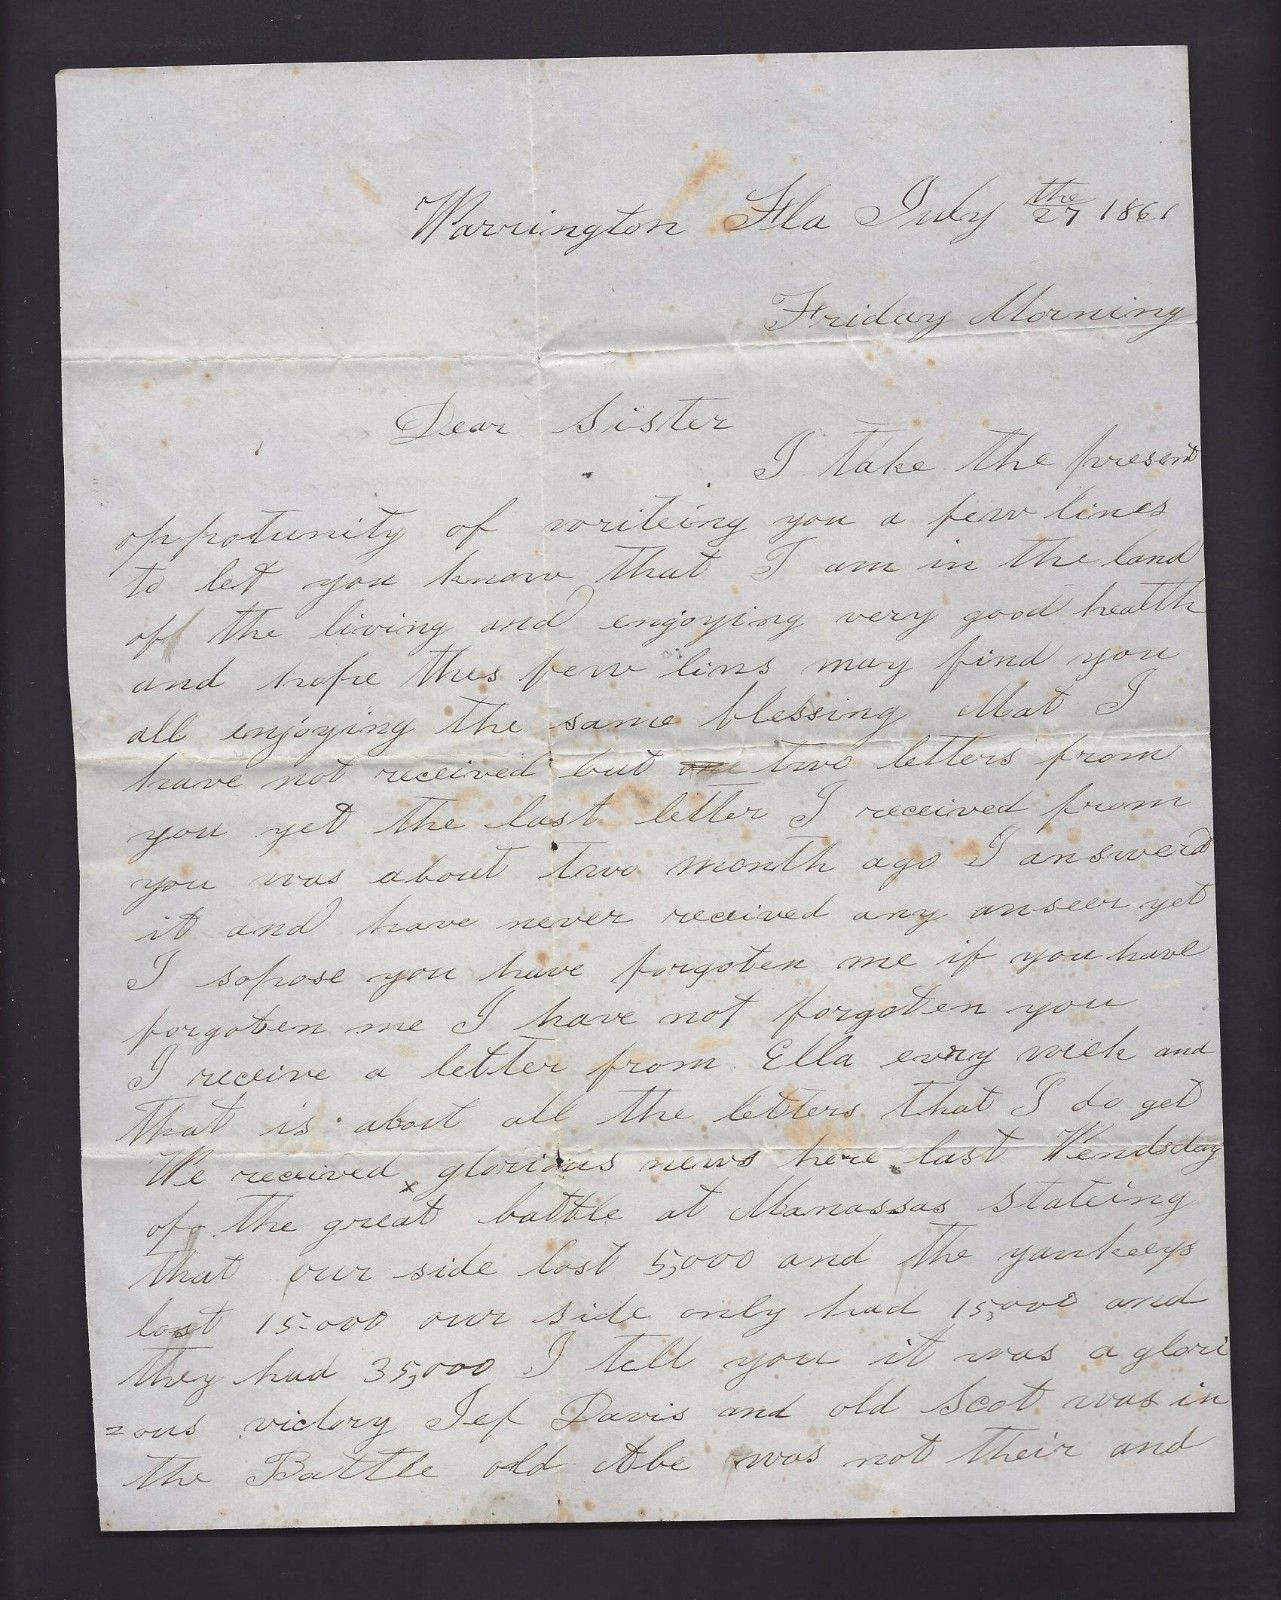 Warrington Fla July the 27 1861
Friday Morning
Dear Sister
I take the present
opprotunity of writeing you a few lines
to let you know that I am in the land
of the living and engoying very good health
and hope thes few lins may find you
all enjoying the same blessing Mat I
have not received but one two letters from
you yet the last letter I received from
you was about two month ago I answerd
it and have never received any anseer yet
I sopose you have forgoten me if you have
forgoten me I have not forgoten you
I receive a letter from Ella evry wiek and
that is abort all the letters that I do get
We received x glorious news here last Wendsday
of the great battle at Manassas stateing
that our side lost 5,000 and the yankeeys
lost 15-000 our side only had 15,000 and
they had 35,000 I tell you it was a glori
=ous victory Jef Davis and old Scot was in
the Battle old Abe was not their and